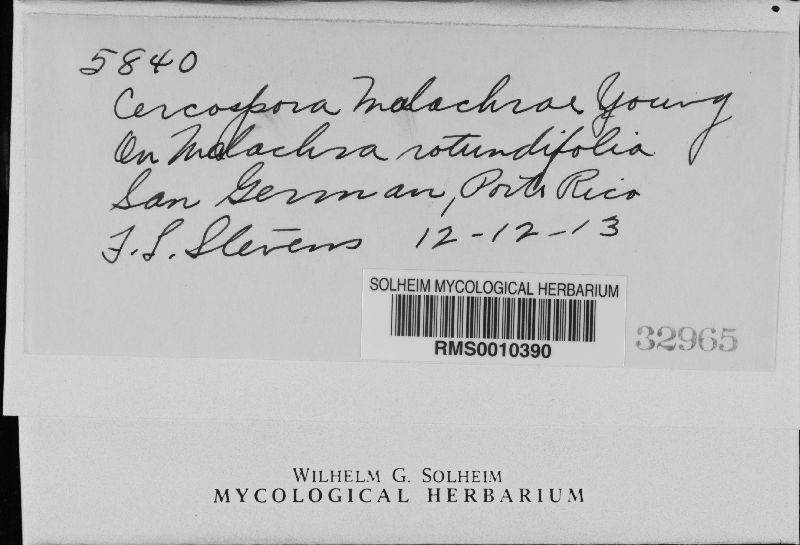 5840
Cercospora Malachrae Young
On Malachra rotundifolia
San German, Porto Rico
F. L. Stevens 12-12-13
SOLHEIM MYCOLOGICAL HERBARIUM
RMS0010390
32965
WILHELM G. SOLHEIM
MYCOLOGICAL HERBARIUM